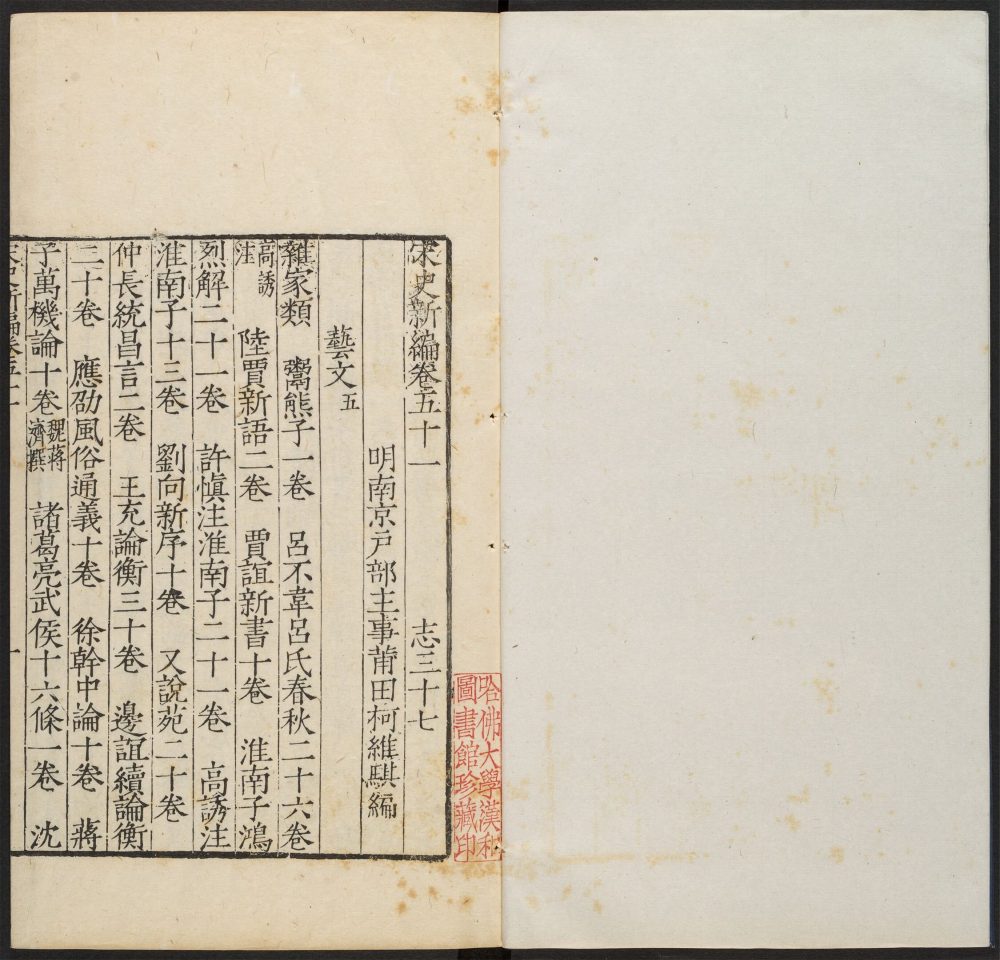 宋史新編卷五十一　志三十七
明南京戸部主事莆田柯維騏編
藝文五
雜家類　鬻熊子一卷　呂不韋呂氏春秋二十六卷
高誘注　陸賈新語二卷　賈誼新書十卷　淮南子鴻
烈解二十一卷　許慎注淮南子二十一卷　高誘注
淮南子十三卷　劉向新序十卷　又說苑二十卷
仲長統昌言二卷　王充論衡三十卷　邊誼續論衡
二十卷　應劭風俗通義十卷　徐幹中論十卷　蔣
子萬機論十卷魏蔣濟撰　諸葛亮武侯十六條一卷　沈
哈佛大學漢和
圖書館珍藏印